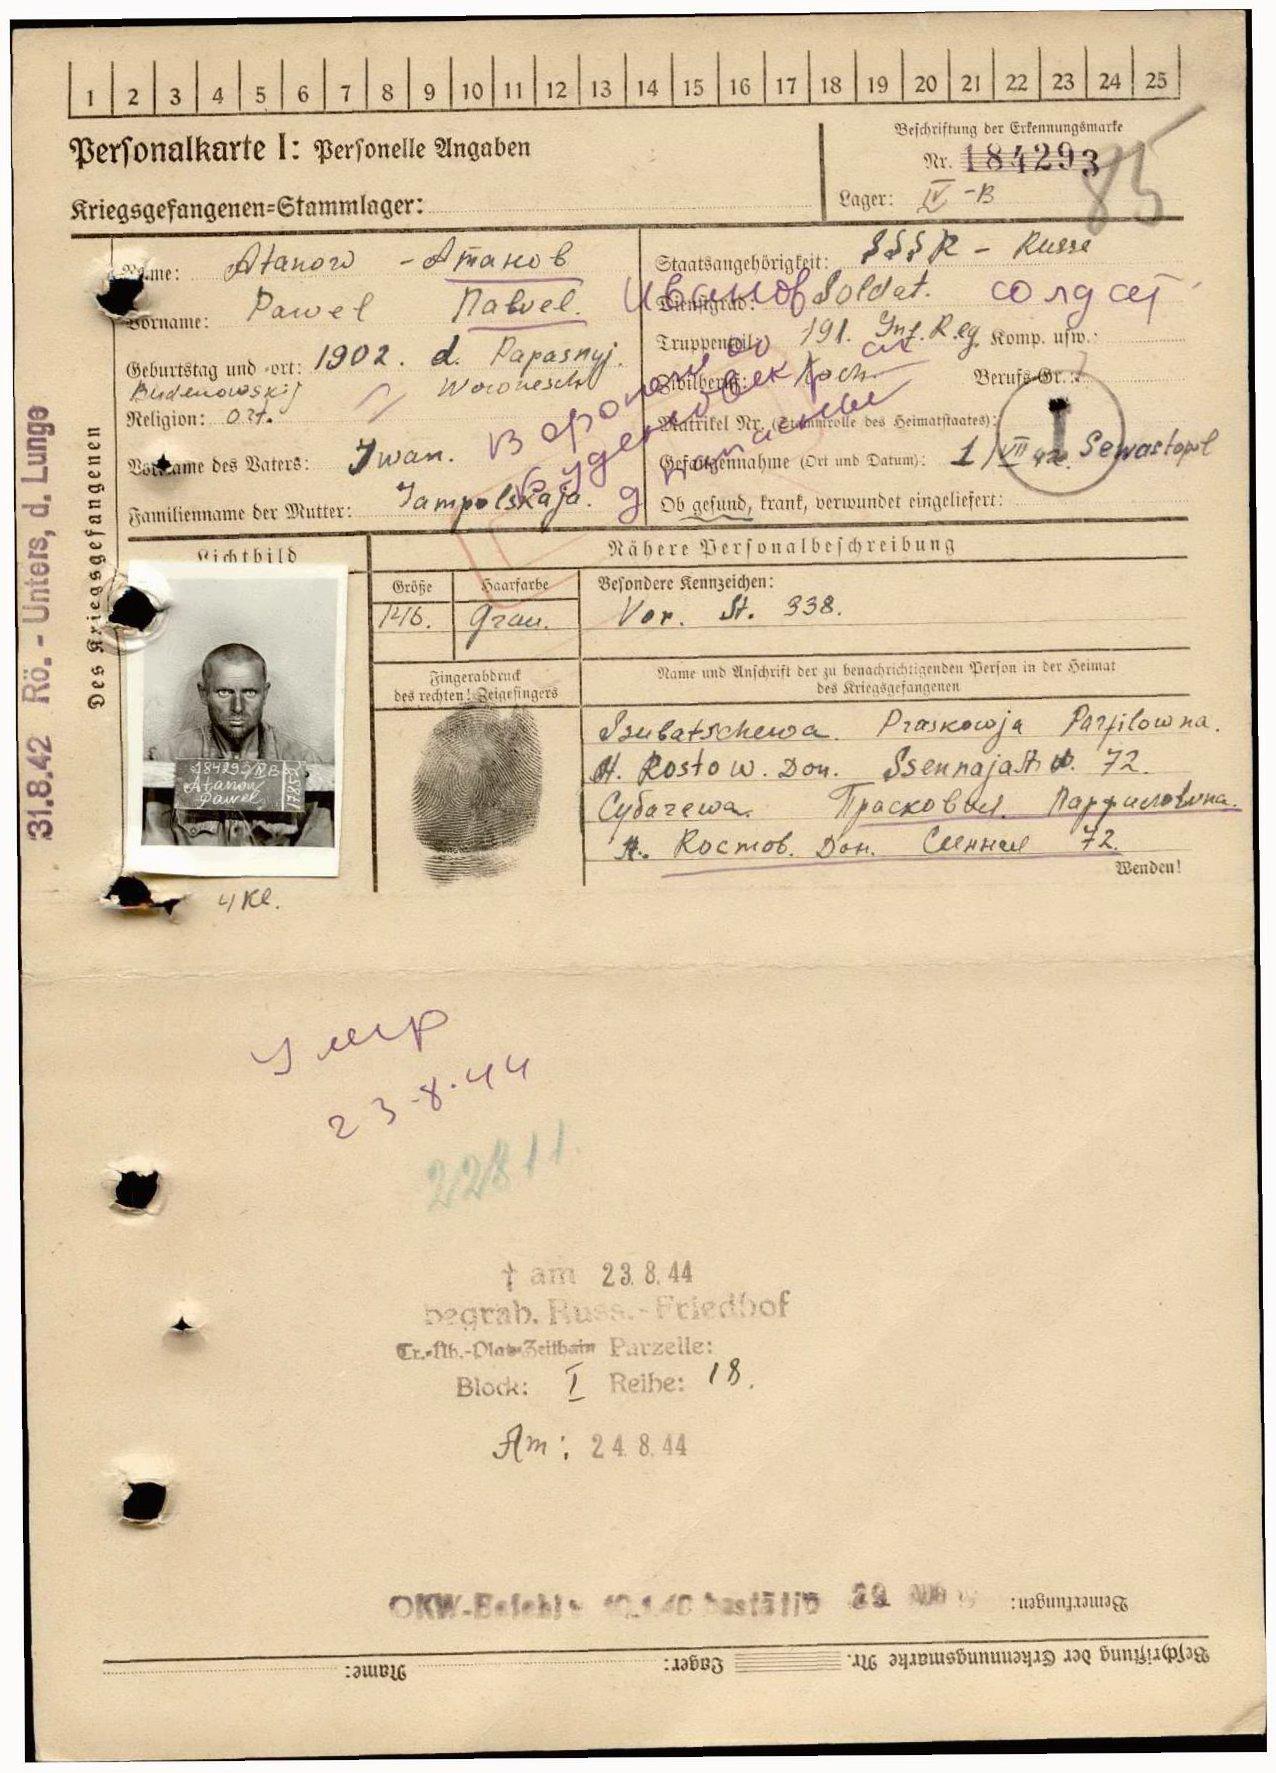 1 2 3 4 5 6 7 8 9 10 11 12 13 14 15 16 17 18 19 20 21 22 23 24 25
Personalkarte I: Personelle Angaben
Kriegsgefangenen=Stammlager:
Beschriftung der Erkennungsmarke
Nr. 184293
Lager: IV-B
85
Des Kriegsgefangenen
31.8.42 Rö.-Unters. d. Lunge
Name: Atanow - Атанов
Vorname: Pawel Павел. Иванов
Geburtstag und -ort: 1902. d. Papasnyj.
Budenowskij Woronesch
Religion: ort.
Vorname des Vaters: Iwan.
Familienname der Mutter: Jampolskaja.
Staatsangehörigkeit: SSSR - Russe
Dienstgrad: Soldat. солдат
Truppenteil: 191. Inf. Reg. Komp. usw.:
Zivilberuf: Koch. Berufs-Gr.:
Matrikel Nr. (Stammrolle des Heimatstaates):
Gefangennahme (Ort und Datum): 1/VII 42. Sewastopol
Ob gesund, krank, verwundet eingeliefert:
Lichtbild
Nähere Personalbeschreibung
Größe Haarfarbe Besondere Kennzeichen:
Grau. Vor. St. 338.
Fingerabdruck
des rechten! Zeigefingers
Name und Anschrift der zu benachrichtigenden Person in der Heimat
des Kriegsgefangenen
Ssubatschewa. Praskowja Parfilowna.
St. Rostow. Don. Ssennaja St. 72.
Субачева. Прасковия. Парфиловна.
Ростов. Дон. Сенная 72.
Wenden!
184293 IV B
Atanow
Pawel
4 Kl.
Умер
23.8.44
22811.
† am 23.8.44
begrab. Russ.-Friedhof
Tr.-Üb.-Platz Zeithain Parzelle:
Block: I Reihe: 18.
Am: 24.8.44
OKW-Befehl v. 10.1.40 bestätig 29 AUG
Bemerkungen:
Beschriftung der Erkennungsmarke Nr. Lager: Name: